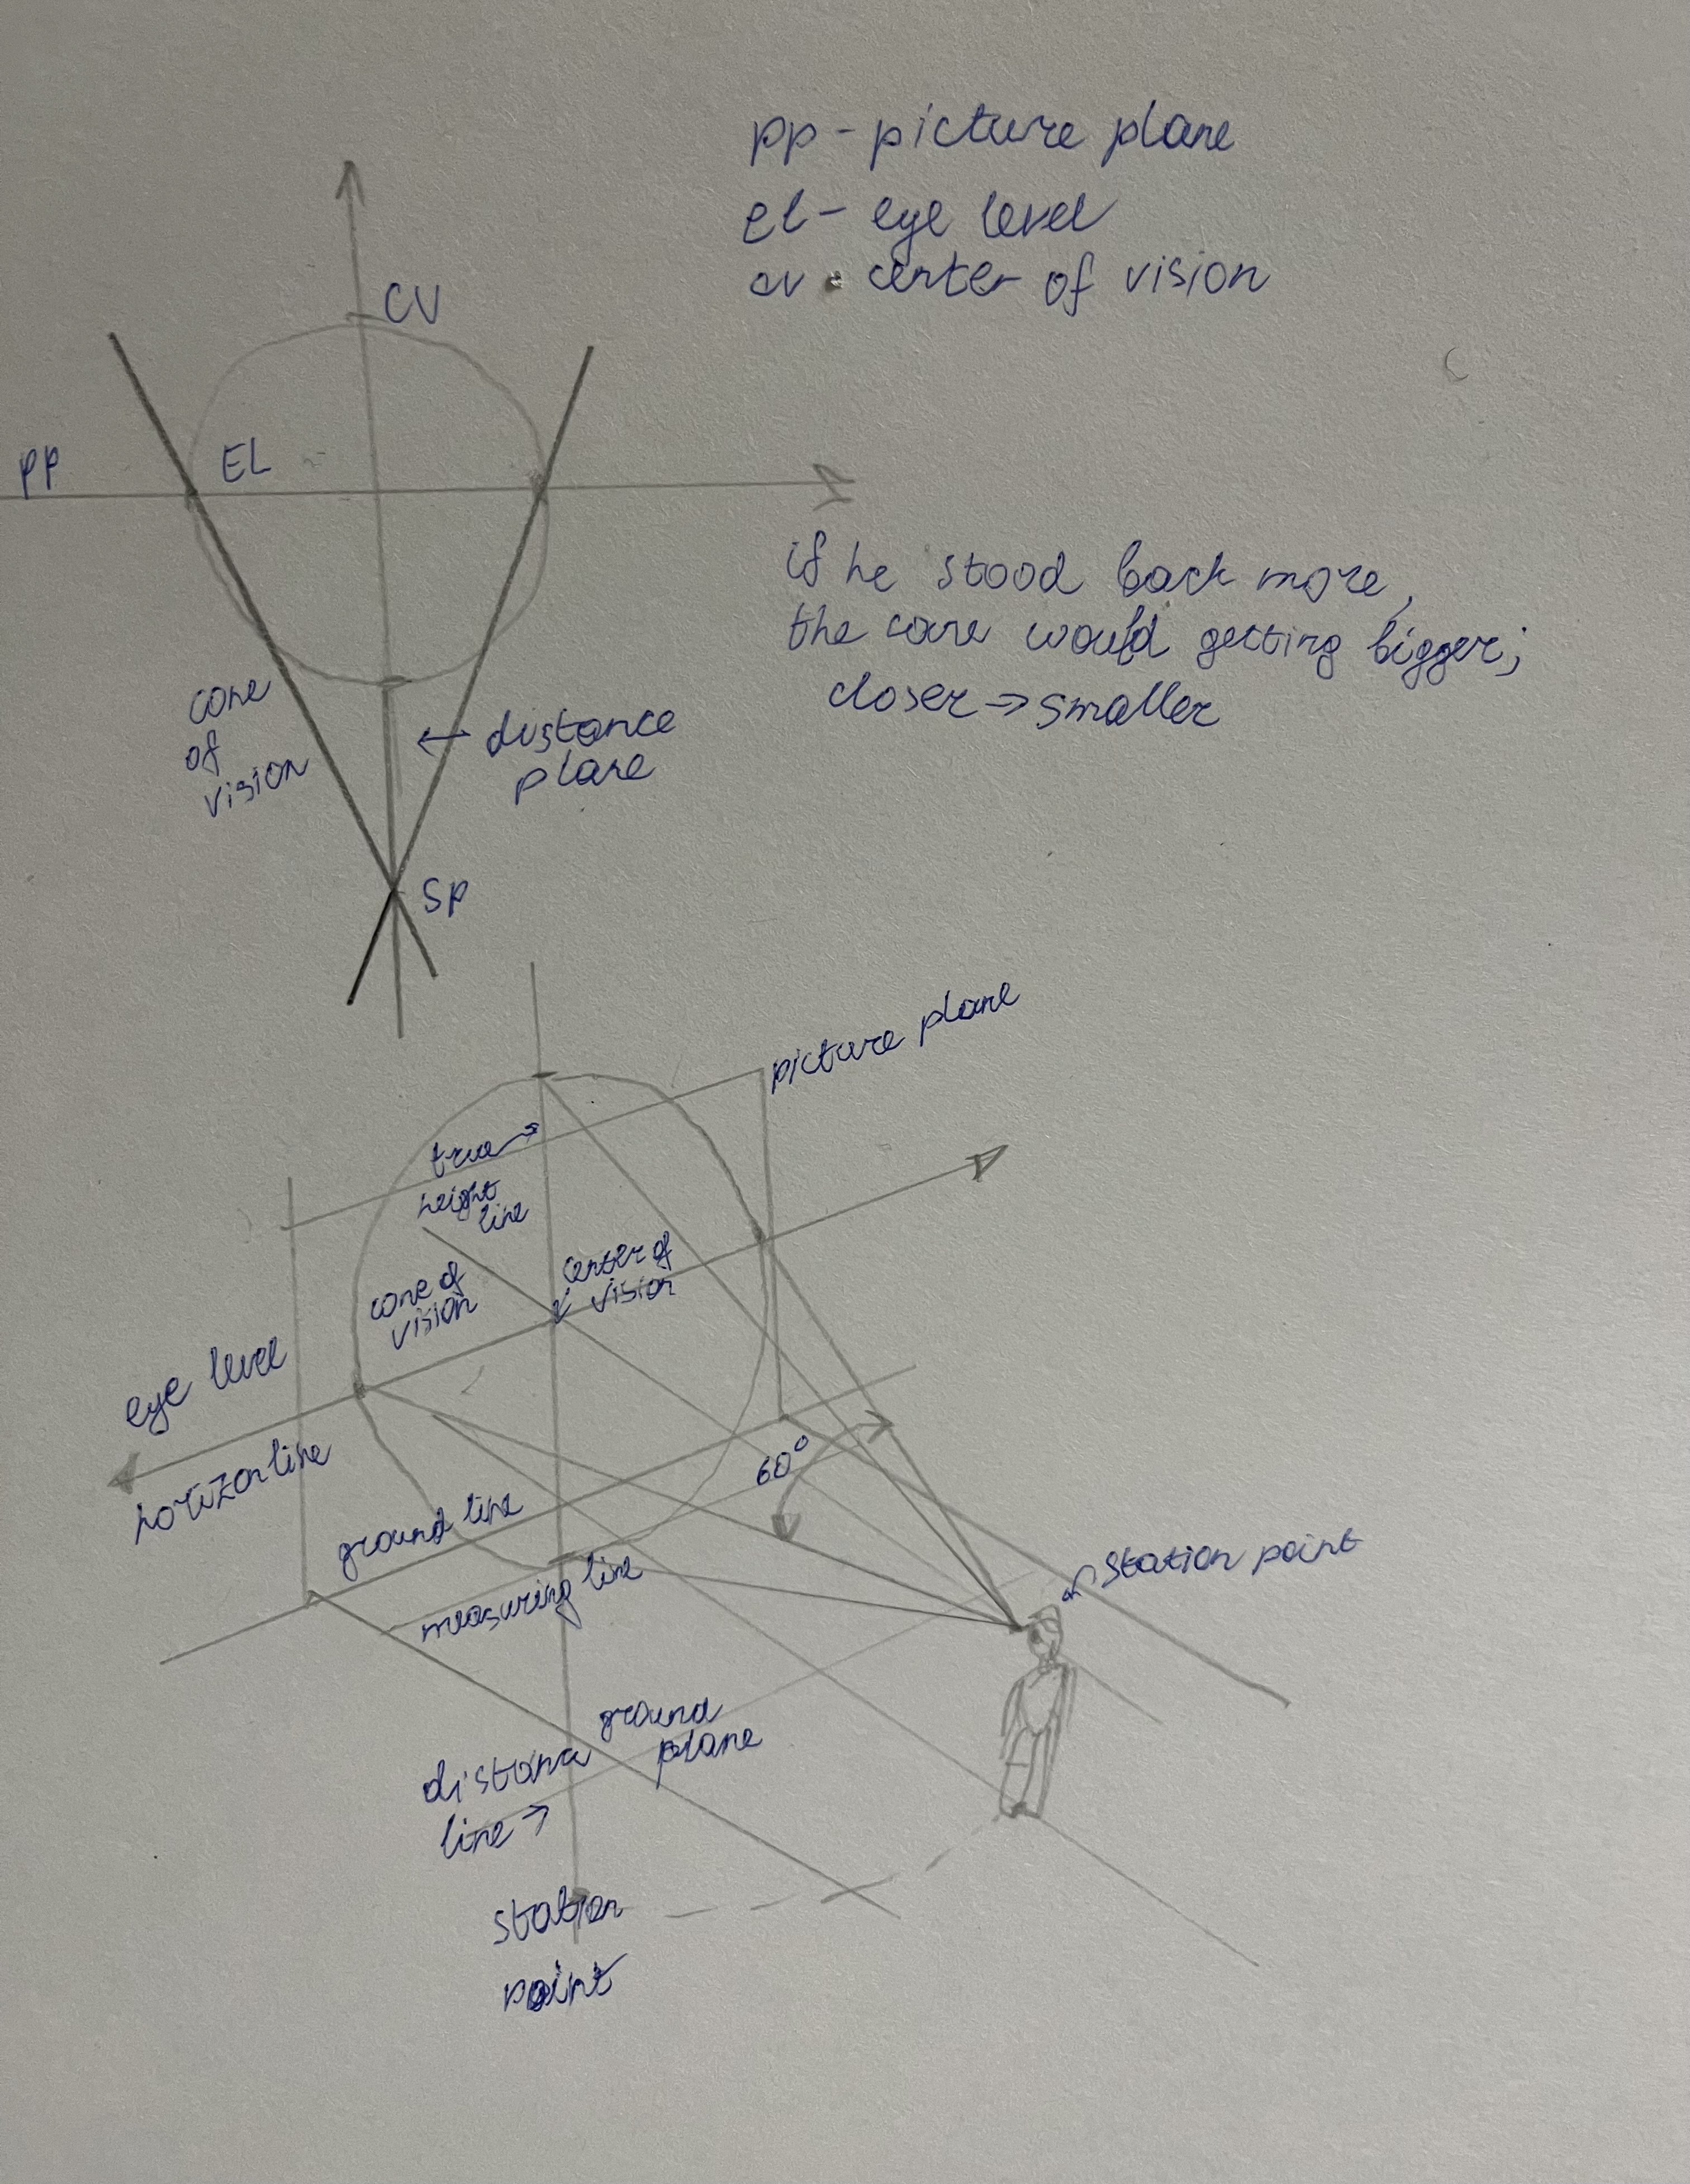 pp - picture plane
el - eye level
cv - center of vision
CV
PP
EL
if he stood back more,
the cone would getting bigger;
closer → smaller
cone
of
vision
← distance
plane
SP
picture plane
true →
height
line
center of
vision
cone of
vision
eye level
horizon line
60°
ground line
measuring line
station point
ground
plane
distance
line →
station
point